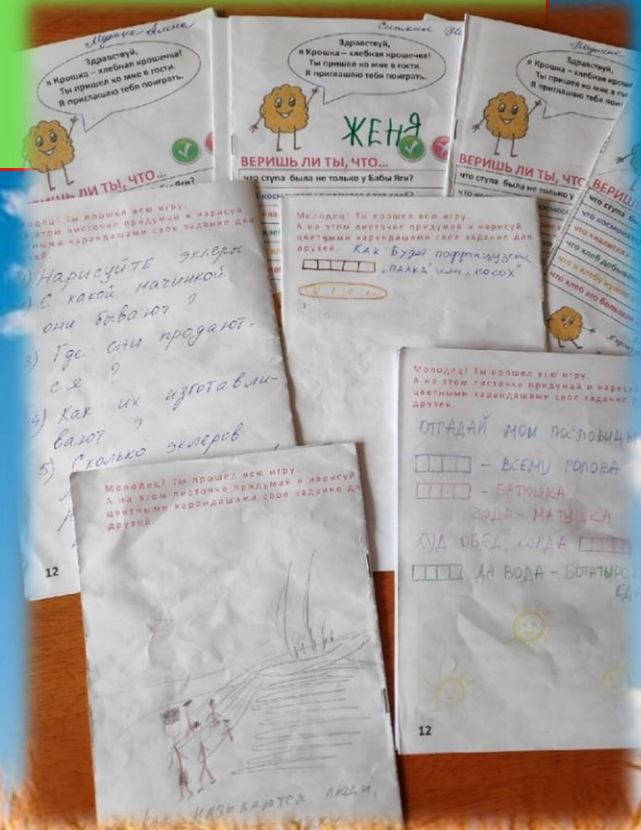 Здравствуй,
я Крошка – хлебная крошечка!
Ты пришел ко мне в гости.
Я приглашаю тебя поиграть.
ВЕРИШЬ ЛИ ТЫ, ЧТО...
Здравствуй,
я Крошка – хлебная крошечка!
Ты пришел ко мне в гости.
Я приглашаю тебя поиграть.
ЖЕНЯ
ВЕРИШЬ ЛИ ТЫ, ЧТО...
что ступа была не только у Бабы Яги?
Здравствуй,
я Крошка – хлебная
Ты пришел ко мне в
Я приглашаю тебя
ВЕРИШЬ ЛИ ТЫ, ЧТО
что ступа была не только у
что ступа
что космонав
что хлеб добывал
что к хлебу
что хлеб это большая
Ты прошел всю игру.
этом листочке придумай и нарисуй
карандашами свое задание для
Нарисуйте эклеры
С какой начинкой
они бывают?
3) Где они продают-
ся?
4) Как их изготавли-
вают?
5) Сколько эклеров
12
Молодец! Ты прошел всю игру.
А на этом листочке придумай и нарисуй
цветными карандашами свое задание для
друзей.
КАК БУДЕТ ПОФРАНЦУЗСКИ
„ПАЛКА" ИЛИ „ПОСОХ"
Молодец! Ты прошел всю игру.
А на этом листочке придумай и нарисуй
цветными карандашами свое задание
друзей.
ОТГАДАЙ МОИ ПОСЛОВИЦЫ
– ВСЕМУ ГОЛОВА
– БАТЮШКА
ВОДА – МАТУШКА
ХУД ОБЕД, КОГДА
ДА ВОДА – БОГАТЫРС
ЕД
12
Молодец! Ты прошел всю игру.
А на этом листочке придумай и нарисуй
цветными карандашами свое задание для
друзей.
КАК НАЗЫВАЮТСЯ ЛЮДИ,